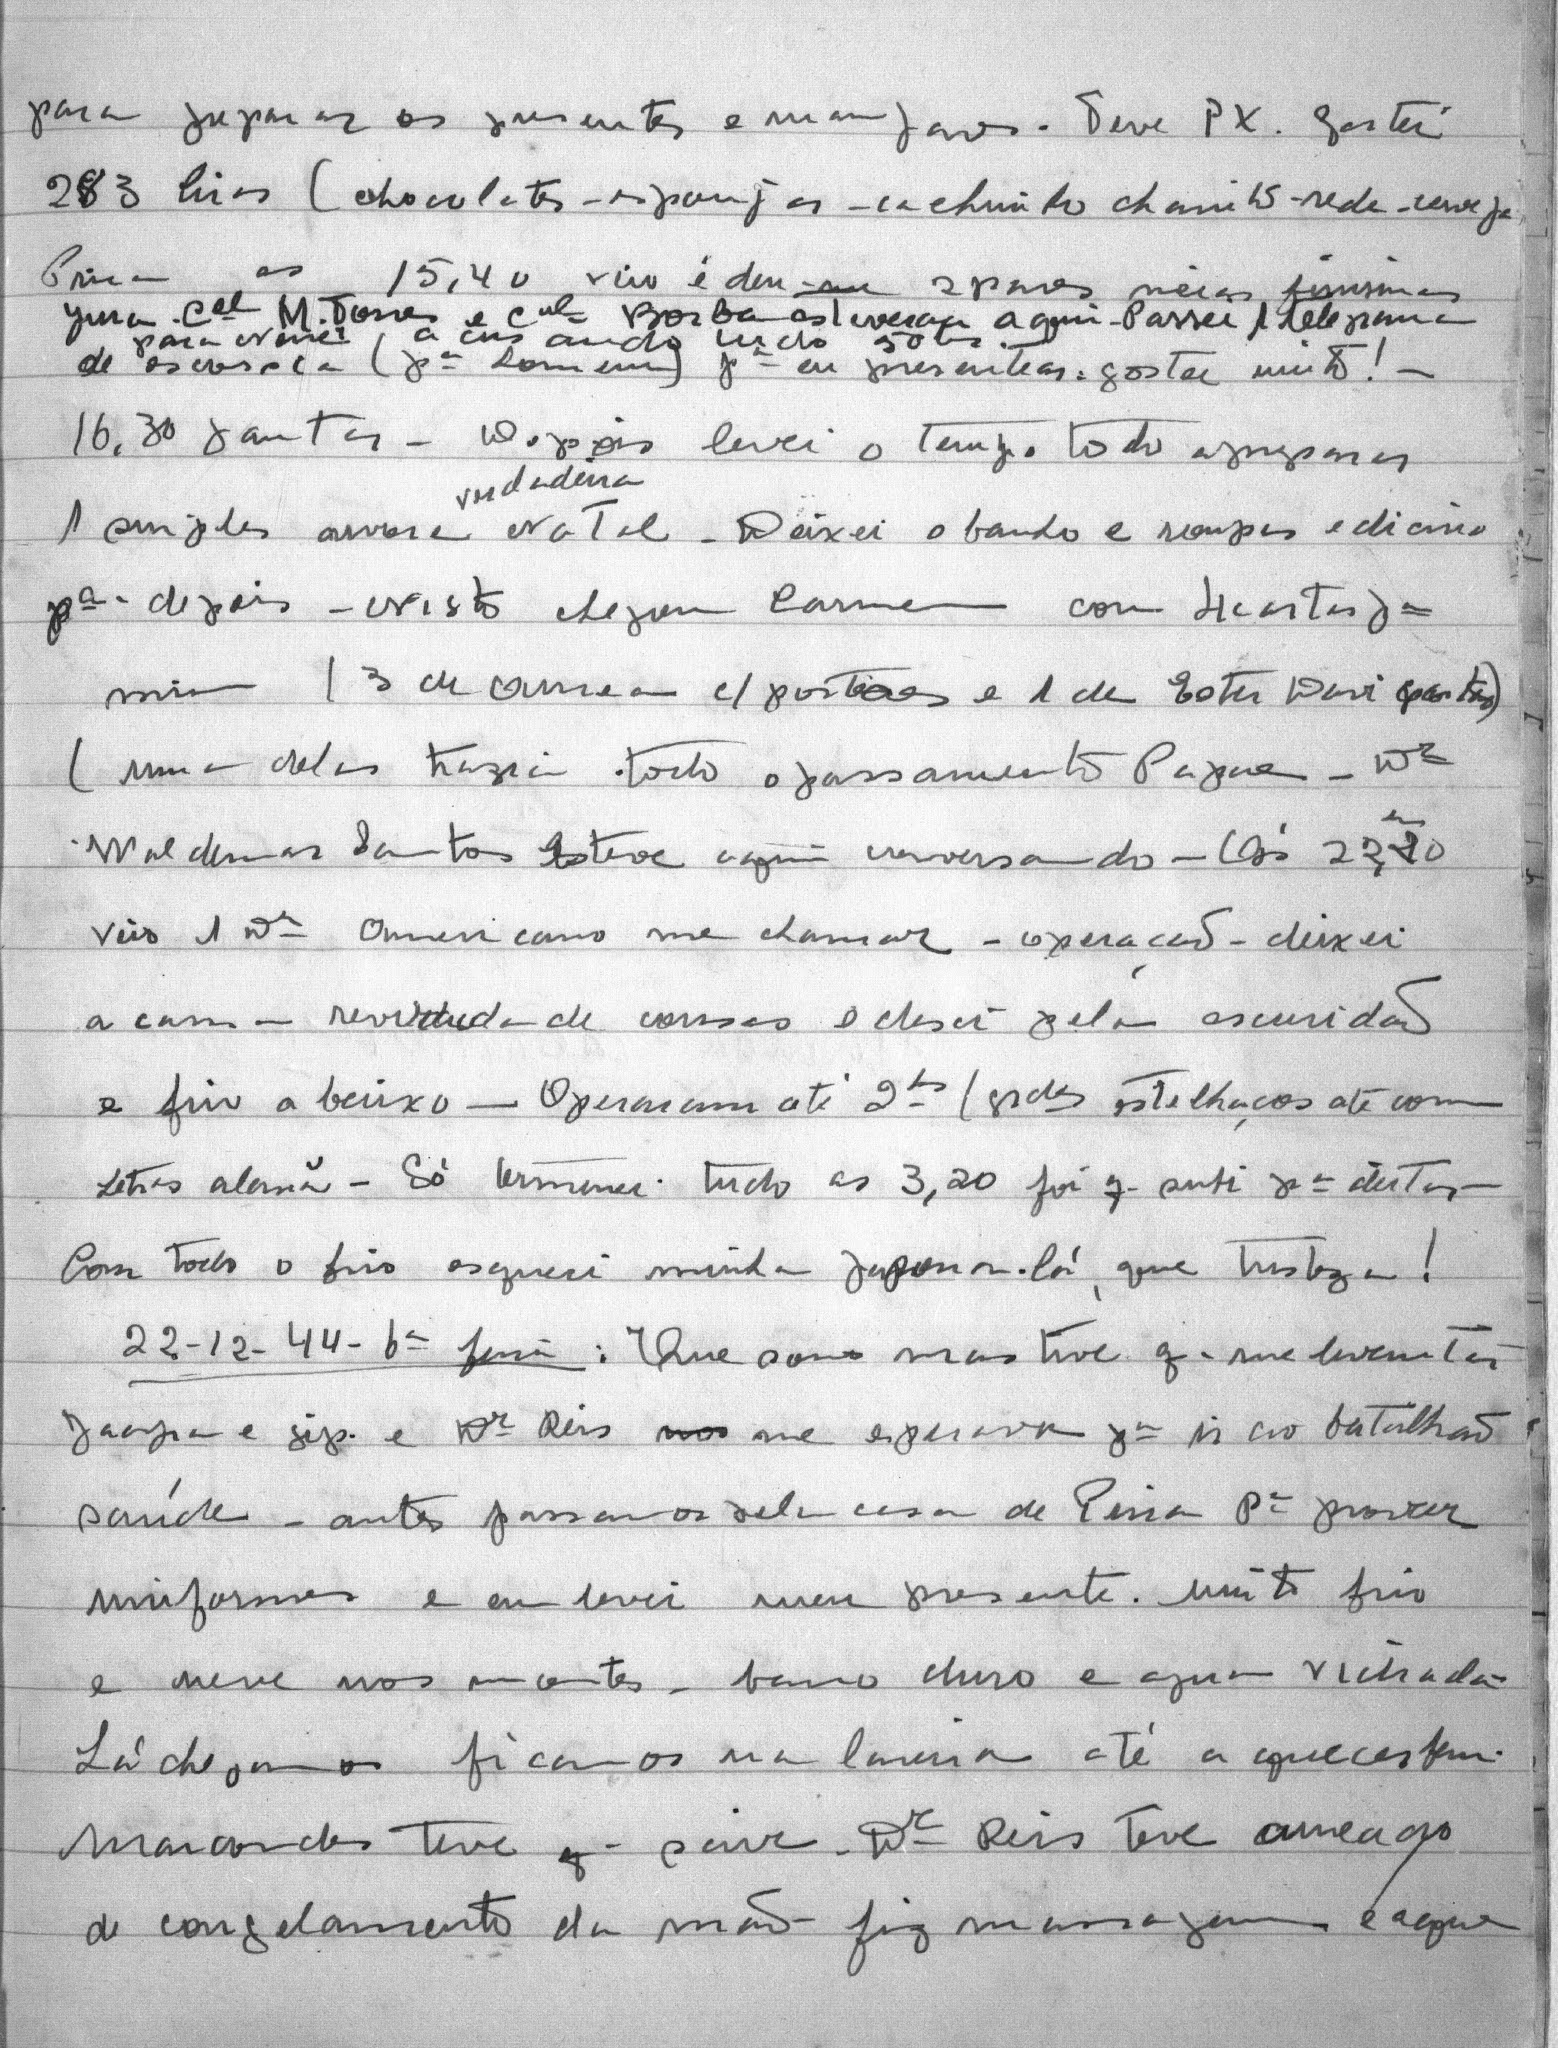 para preparar os presentes e manjares. Teve PX. Gastei
283 liras (chocolates - esponjas - cachimbo charuto - rede - cerveja
Pina as 15,40 veio e deu-me 2 pares meias finissimas
Cel M. Torres e Cel Borba estiveram aqui. Passei 1 telegrama
para acusando tudo
de escossia (pa homem) pa eu presentear. gostei muito! -
16,30 jantar - Depois levei o tempo todo a preparar
verdadeira
1 simples arvore Natal - Deixei o banho e roupas e diario
pa depois - Nisto chegou Carmen com 4 cartas pa
mim (3 de Aurea c/ postaes e 1 de Ester Davi
(uma delas trazia todo o passamento Papae - Dr
Waldemar Santos Esteve aqui conversando - Ás 22,20
veio 1 Dr Americano me chamar - operação - deixei
a cama de cousas e desci pela escuridão
e frio abaixo - Operaram até 2hs (grdes estelhaços até com
letras alemã - Só terminei tudo as 3,20 foi q. subi pa deitar -
Com todo o frio esqueci minha japona lá, que tristeza!
22-12-44 - 6a feira: Que sono mas tive q. me levantar
e gip. e Dr Reis me esperava pa ir ao batalhão
saúde - antes passamos pela casa de Pina Pa provar
uniformes e eu levei meu presente. Muito frio
e neve nos montes - barro duro e agua vidrada
Lá chegamos ficamos na lareira até aquecer bem.
Marcondes teve q. sair - Dr Reis teve ameaço
de congelamento da mão - fiz massagem e aque